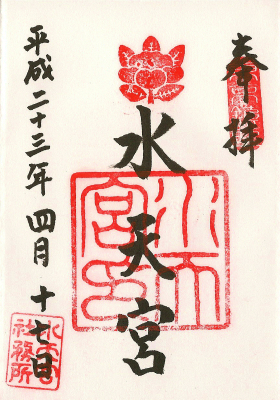 奉拝
水天宮
平成二十三年 四月 十七日
水天宮印
水天宮
社務所